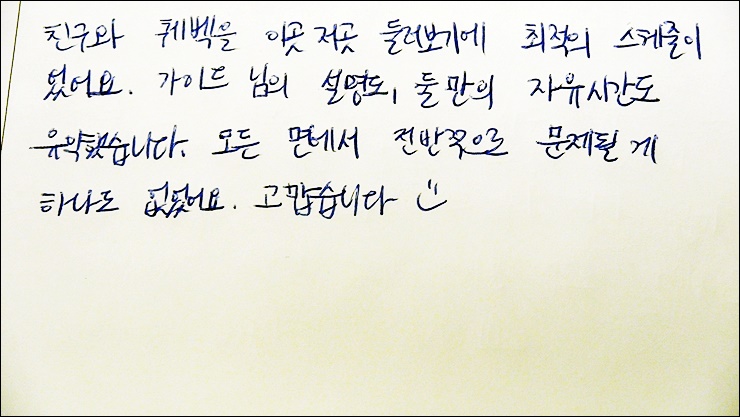 친구와 퀘벡을 이곳저곳 둘러보기에 최적의 스케줄이
었어요. 가이드 님의 설명도, 둘만의 자유시간도
유익했습니다. 모든 면에서 전반적으로 문제될 게
하나도 없었어요. 고맙습니다